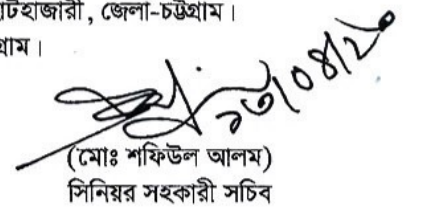 টহাজারী, জেলা-চট্টগ্রাম।
গ্রাম।
১৩/০৪/২০
(মোঃ শফিউল আলম)
সিনিয়র সহকারী সচিব